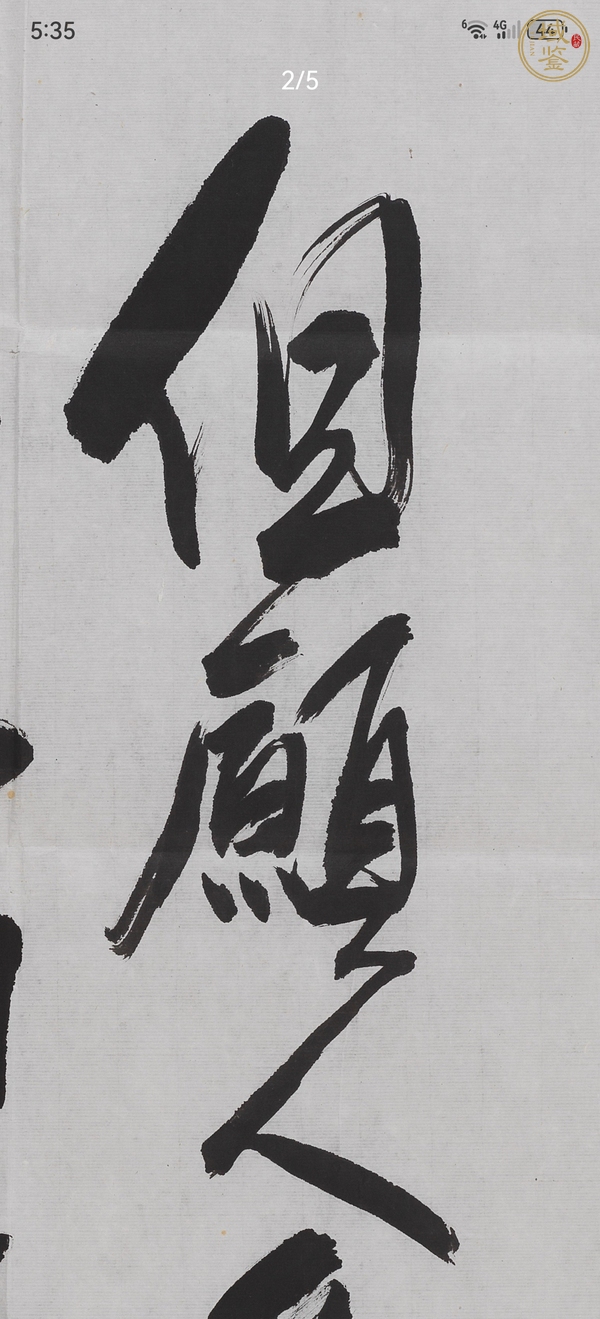 5:35
6 4G 44
2/5
但願人